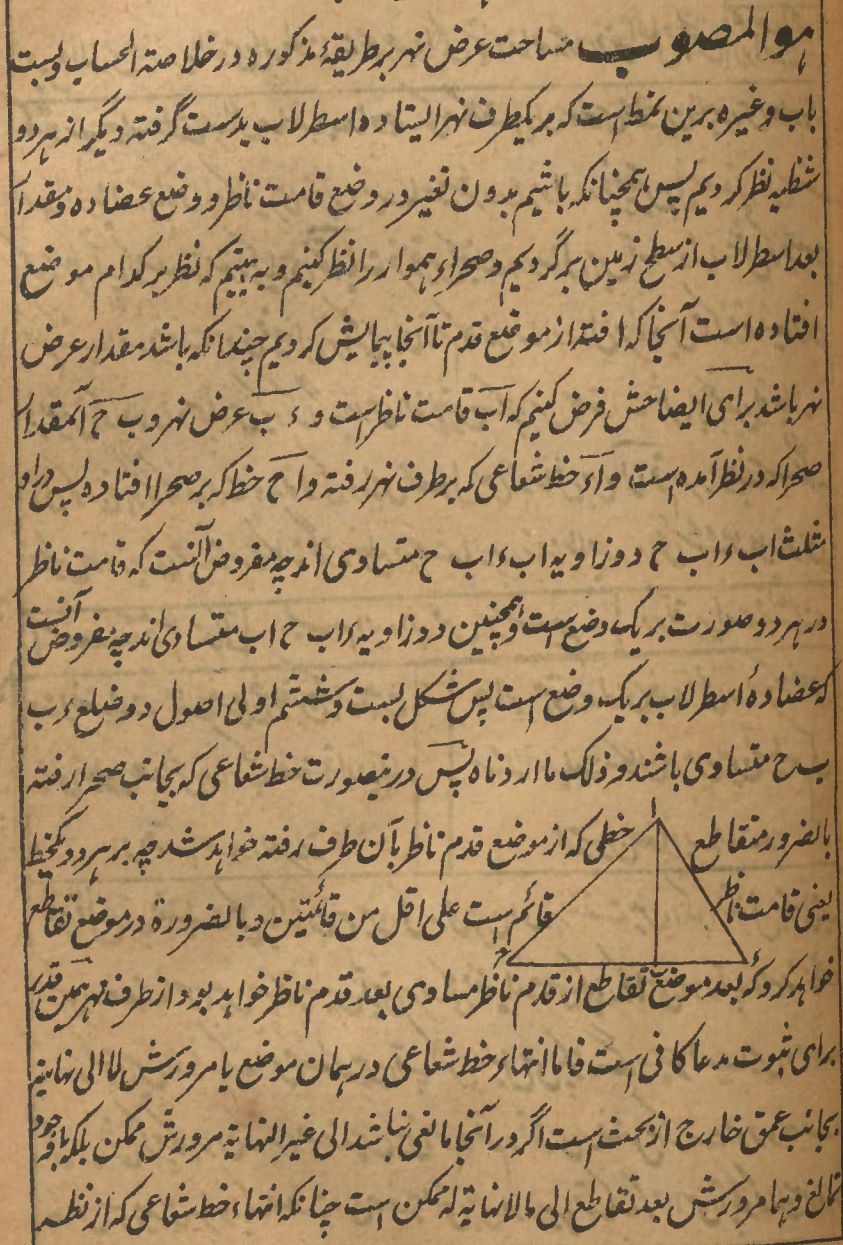 هو المصوب مساحت عرض نهر بر طریقهٔ مذکوره در خلاصة الحساب و بست
باب و غیره برین نمط است که بر یکطرف نهر ایستاده اسطرلاب بدست گرفته دیگر از هر دو
شظیه نظر کردیم پس همچنانکه باشیم بدون تغیر در وضع قامت ناظر و وضع عضاده و مقدار
بعد اسطرلاب از سطح زمین برگردیم و صحراء هموار را نظر کنیم و به بینیم که نظر بر کدام موضع
افتاده است آنجا که افتد از موضع قدم تا آنجا پیمایش کردیم چندانکه باشد مقدار عرض
نهر باشد برای ایضاحش فرض کنیم که اب قامت ناظر است و ء ب عرض نهر و ب ح آنمقدار
صحرا که در نظر آمده است و اء خط شعاعی که بر طرف نهر رفته و ا ح خط که بر صحرا افتاده پس در دو
مثلث اب ء اب ح دو زاویه اب ء اب ح متساوی اند چه مفروض آنست که قامت ناظر
در هر دو صورت بر یک وضع است و همچنین دو زاویه ء اب ح اب متساوی اند چه مفروض آنست
که عضادهٔ اسطرلاب بر یک وضع است پس بشکل بست و ششم اولی اصول دو ضلع ء ب
ب ح متساوی باشند و ذلک ما اردناه پس درینصورت خط شعاعی که بجانب صحرا رفته
بالضرور متقاطع خطی که از موضع قدم ناظر بآن طرف رفته خواهد شد چه بر هر دو یکخط
یعنی قامت ناظر قائم است علی اقل من قائمتین و بالضرورة در موضع تقاطع
خواهد کرد که بعد موضع تقاطع از قدم ناظر مساوی بعد قدم ناظر خواهد بود از طرف نهر همین قدر
برای ثبوت مدعا کافی است فاما انتهاء خط شعاعی در همان موضع یا مرورش لا الی نهایة
بجانب عمق خارج از بحث است اگر در آنجا مانعی نباشد الی غیر النهایة مرورش ممکن بلکه با وجود
مانع وهما مرورش بعد تقاطع الی ما لا نهایة له ممکن است چنانکه انتهاء خط شعاعی که از نظر